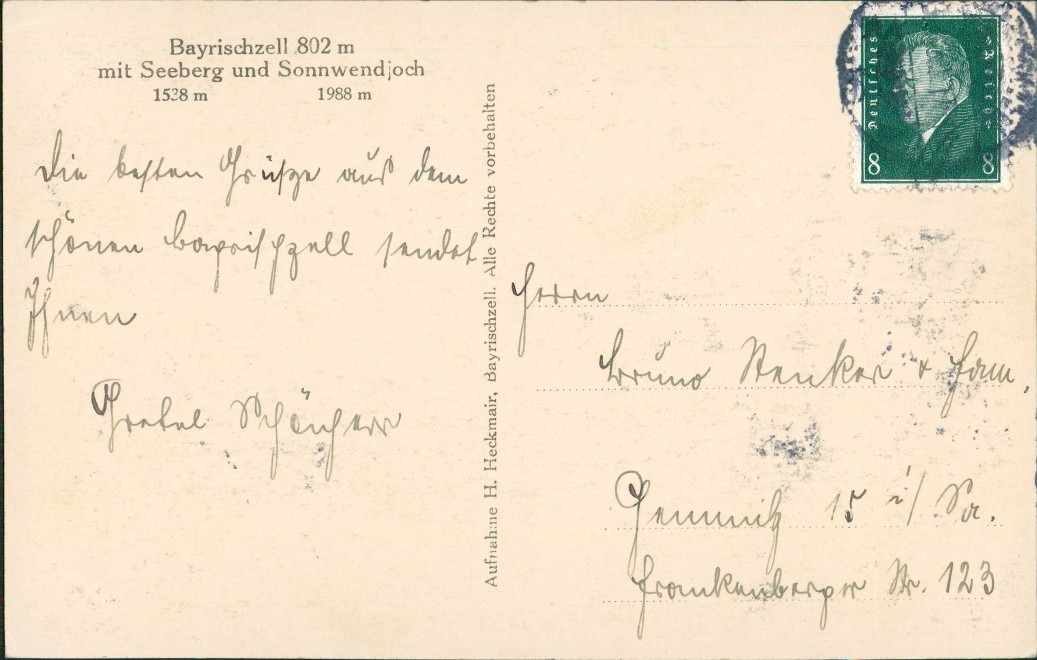 Bayrischzell 802 m
mit Seeberg und Sonnwendjoch
1538 m 1988 m
Die besten Grüsze aus dem
schönen Bayrischzell sendet
Ihnen
Gretel Schönherr
Aufnahme H. Heckmair, Bayrischzell. Alle Rechte vorbehalten
Deutsches Reich
8 8
Herrn
Bruno Stenker + Fam.
Chemnitz 15 i/ Sa.
Frankenberger Str. 123